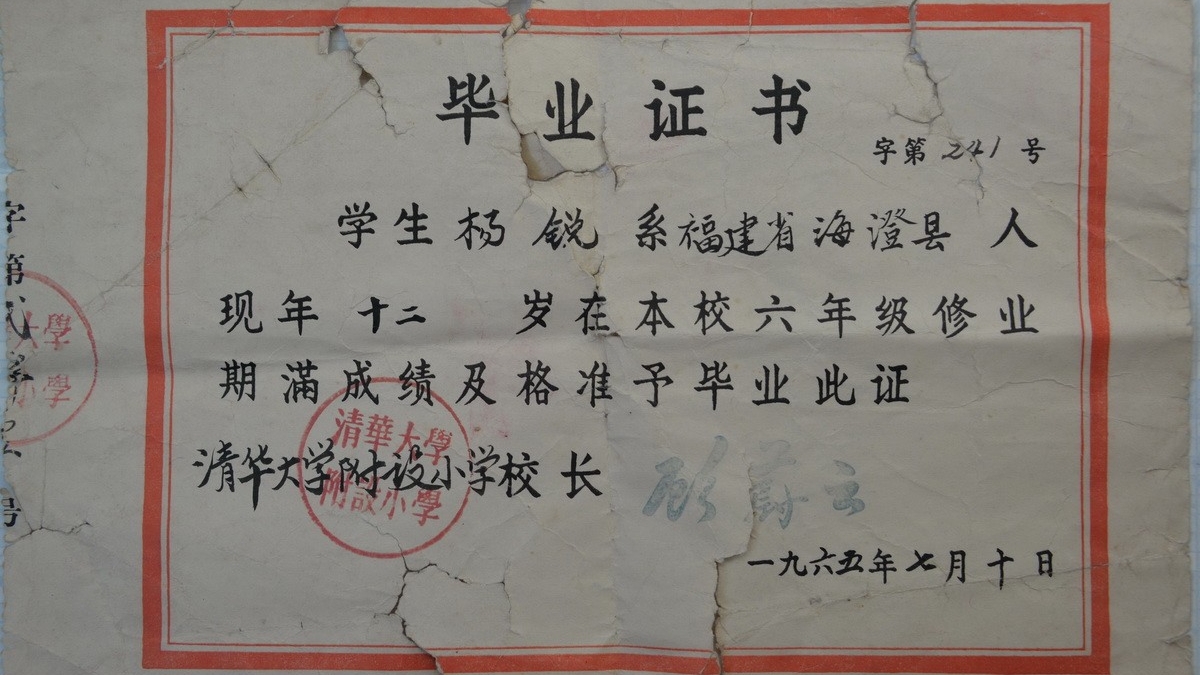 毕业证书
字第241号
学生杨锐系福建省海澄县人
现年十二岁在本校六年级修业
期满成绩及格准予毕业此证
清华大学附设小学校长 顾蔚云
一九六五年七月十日
清華大學
附設小學
字第贰
号